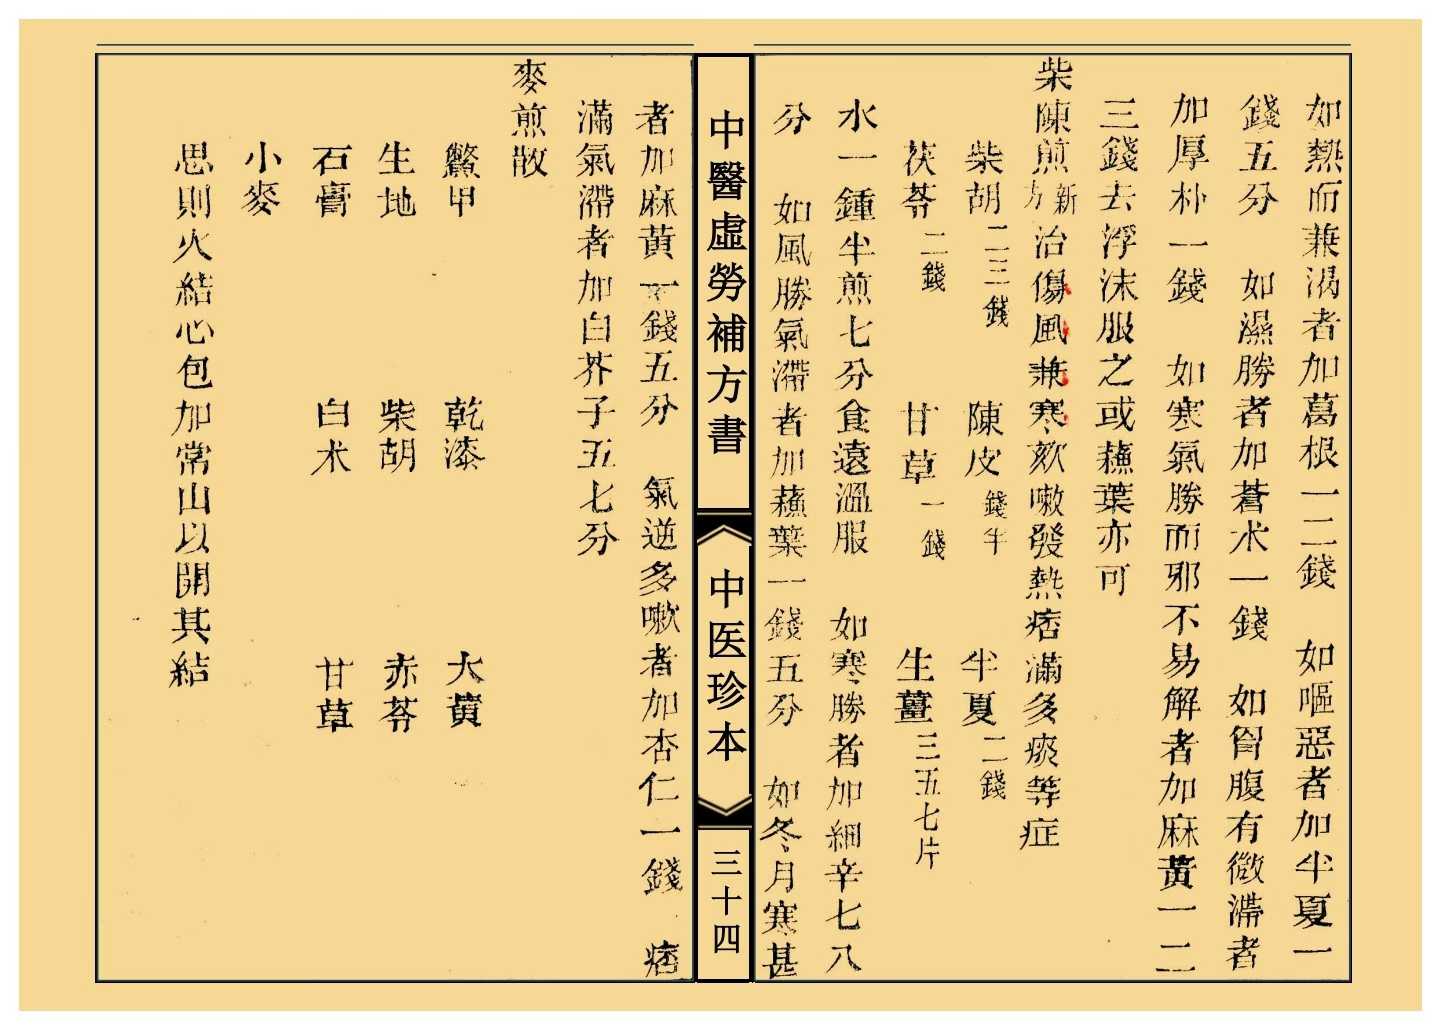 如熱而兼渴者加葛根一二錢　如嘔惡者加半夏一
錢五分　如濕勝者加蒼朮一錢　如胷腹有微滯者
加厚朴一錢　如寒氣勝而邪不易解者加麻黃一二
三錢去浮沫服之或蘓葉亦可
柴陳煎新方治傷風兼寒欬嗽發熱痞滿多痰等症
柴胡二三錢　陳皮錢半　半夏二錢
茯苓二錢　甘草一錢　生薑三五七片
水一鍾半煎七分食遠溫服　如寒勝者加細辛七八
分　如風勝氣滯者加蘓葉一錢五分　如冬月寒甚
中醫虛勞補方書
中医珍本
三十四
者加麻黃一錢五分　氣逆多嗽者加杏仁一錢　痞
滿氣滯者加白芥子五七分
麥煎散
鱉甲　乾漆　大黃
生地　柴胡　赤苓
石膏　白朮　甘草
小麥
思則火結心包加常山以開其結